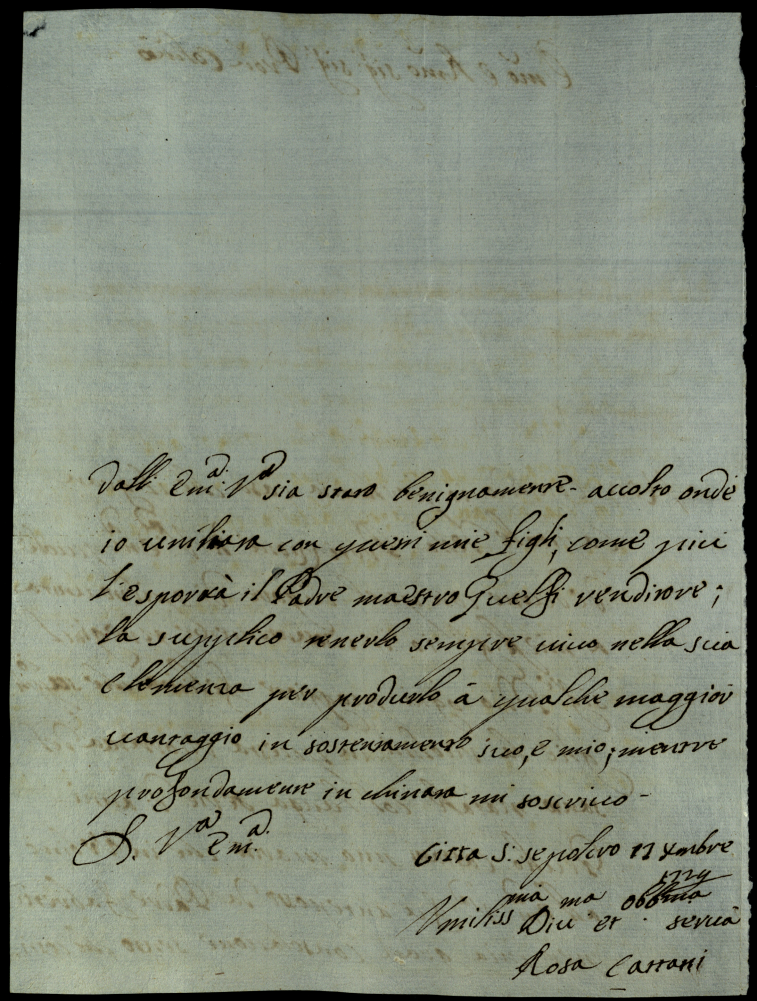 dall' Em.ª V.ª sia stato benignamente accolto onde
io umiliata con questi miei figli, come più
l'esporrà il Padre maestro Guelfi venditore;
la supplico tenerlo sempre vivo nella sua
Clemenza per produrlo à qualche maggior
vantaggio in sostentamento suo, e mio; mentre
profondamente inchinata mi soscrivo
S. V.ª Em.ª
Citta S. Sepolcro 17 Xmbre
Umiliss.ma Div.ma et Obb.ma serva
Rosa Cattani